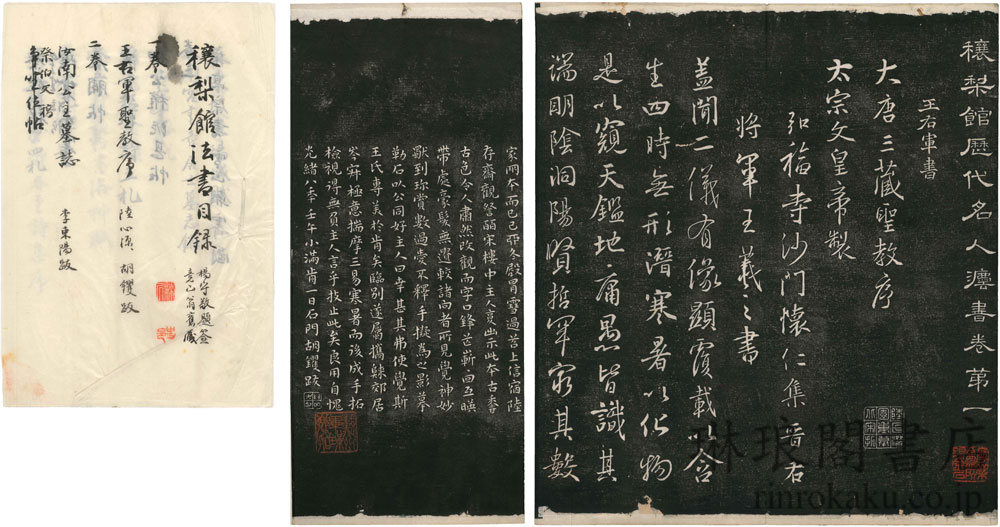 穰梨館歴代名人灋書卷第一
王右軍書
大唐三藏聖教序
太宗文皇帝製
弘福寺沙門懷仁集晉右
將軍王羲之書
蓋聞二儀有像顯覆載以含
生四時無形潛寒暑以化物
是以窺天鑑地庸愚皆識其
端明陰洞陽賢哲罕窮其數
家開本而已已酉冬殿冒雪過苕上信宿陸
存齋觀詧皕宋樓中主人亶出示此本古香
古色令人肅然改觀而字口鋒芒嶄亘暎
帶處豪髮無遺較諸向者所見覺神妙
獸到珍賞數過愛不釋手擬為之影摹
勒石以公同好主人曰幸甚其弗使覺斯
王氏專美於肯矣臨別遂屬攜歸郊居
岑寂極意揣摩三易寒暑而後成手拓
檢視得無負主人言乎技止此矣良用自愧
光緒八季壬午小滿肯一日石門胡钁跋
穰梨館法書目録
楊守敬題簽
一卷
王右軍聖教序
陸心源 胡钁跋
二卷
汝南公主墓誌
李東陽跋
祭伯文稿
爭坐位帖
琳琅閣書店
rinrokaku.co.jp